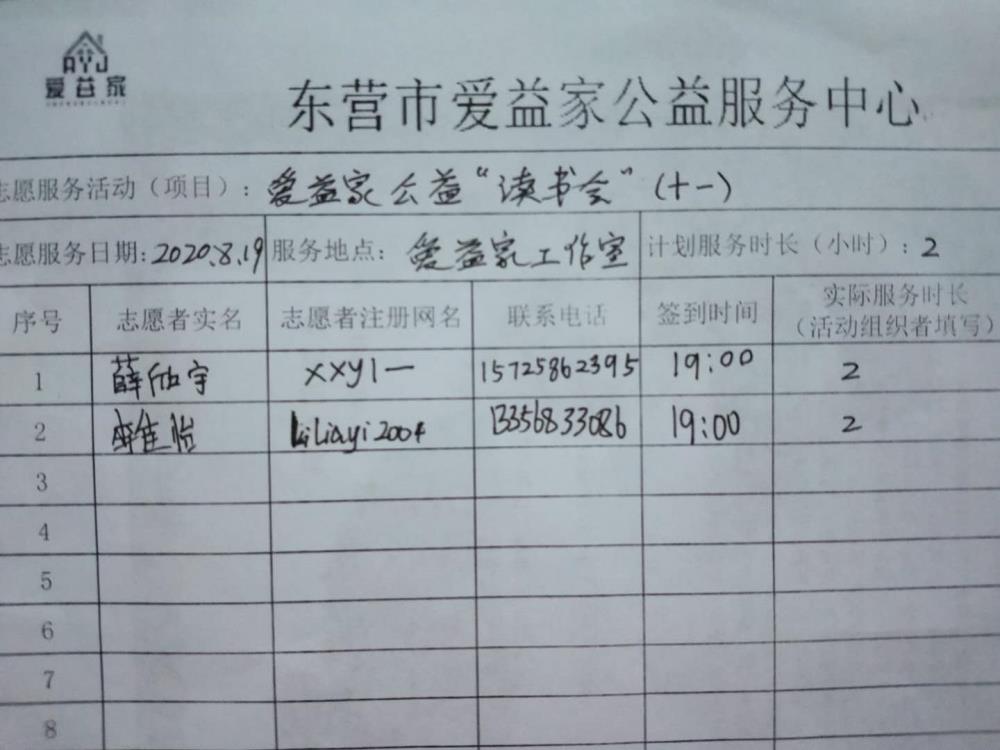 AYJ
爱益家
东营市爱益家公益服务中心
志愿服务活动（项目）：爱益家公益“读书会”（十一）
志愿服务日期：2020.8.19 服务地点：爱益家工作室 计划服务时长（小时）：2
序号 志愿者实名 志愿者注册网名 联系电话 签到时间 实际服务时长
（活动组织者填写）
1 薛欣宇 xxy1一 15725862395 19:00 2
2 怡 liliayi2004 13356833086 19:00 2
3
4
5
6
7
8